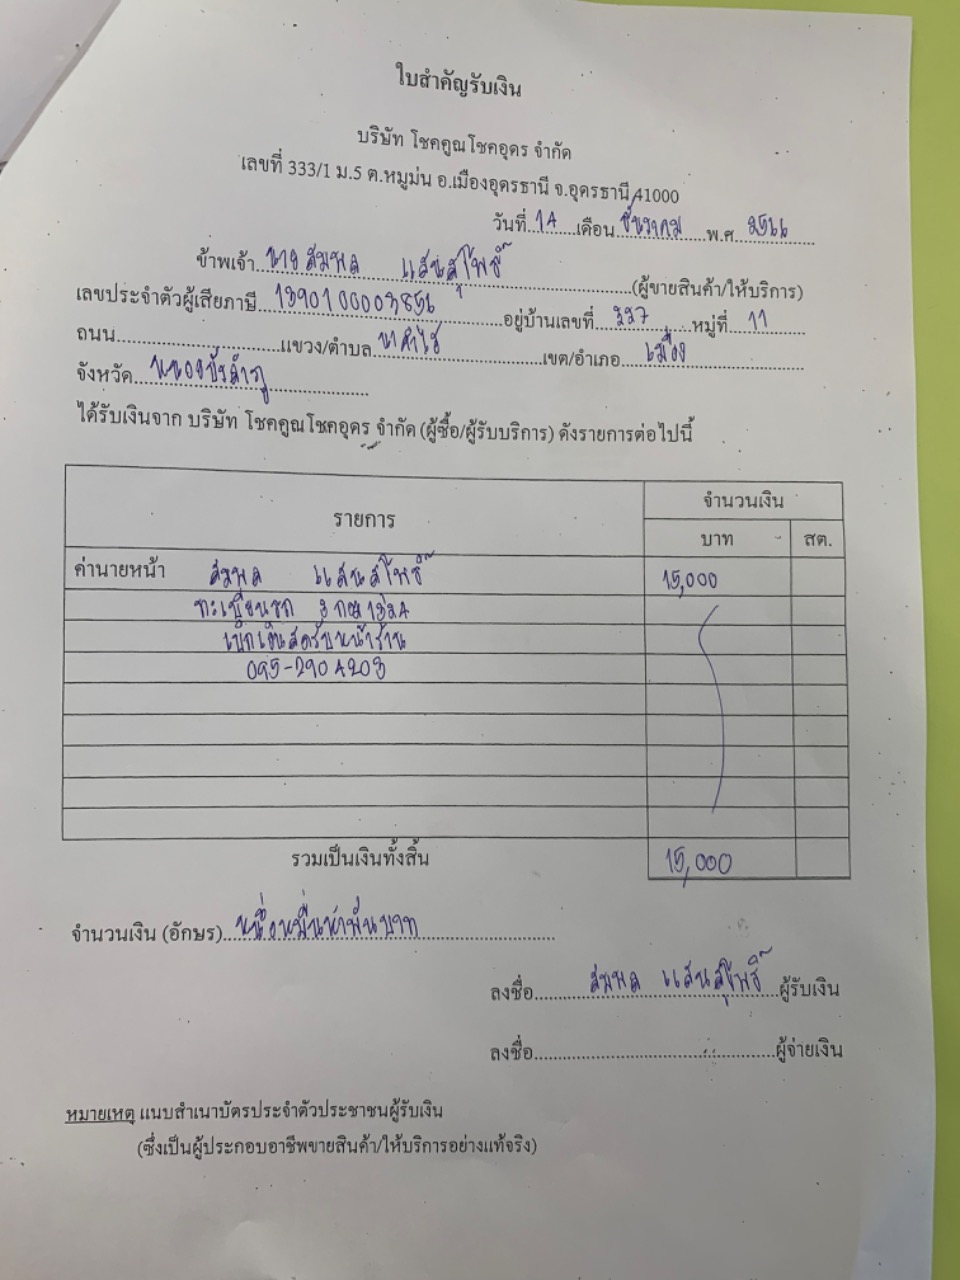 ใบสำคัญรับเงิน
บริษัท โชคคูณโชคอุดร จำกัด
เลขที่ 333/1 ม.5 ต.หมูม่น อ.เมืองอุดรธานี จ.อุดรธานี 41000
วันที่ 14 เดือน ธันวาคม พ.ศ. 2566
ข้าพเจ้า นายสมพล แสนสุโพธิ์ (ผู้ขายสินค้า/ให้บริการ)
เลขประจำตัวผู้เสียภาษี 1390100003856 อยู่บ้านเลขที่ 227 หมู่ที่ 11
ถนน แขวง/ตำบล นาคำไฮ เขต/อำเภอ เมือง
จังหวัด หนองบัวลำภู
ได้รับเงินจาก บริษัท โชคคูณโชคอุดร จำกัด (ผู้ซื้อ/ผู้รับบริการ) ดังรายการต่อไปนี้
รายการ จำนวนเงิน
บาท สต.
ค่านายหน้า สมพล แสนสุโพธิ์ 15,000
ทะเบียนรถ
เบิกเงินสดรับหน้าร้าน
095-2904203
รวมเป็นเงินทั้งสิ้น 15,000
จำนวนเงิน (อักษร) หนึ่งหมื่นห้าพันบาท
ลงชื่อ สมพล แสนสุโพธิ์ ผู้รับเงิน
ลงชื่อ ผู้จ่ายเงิน
หมายเหตุ แนบสำเนาบัตรประจำตัวประชาชนผู้รับเงิน
(ซึ่งเป็นผู้ประกอบอาชีพขายสินค้า/ให้บริการอย่างแท้จริง)